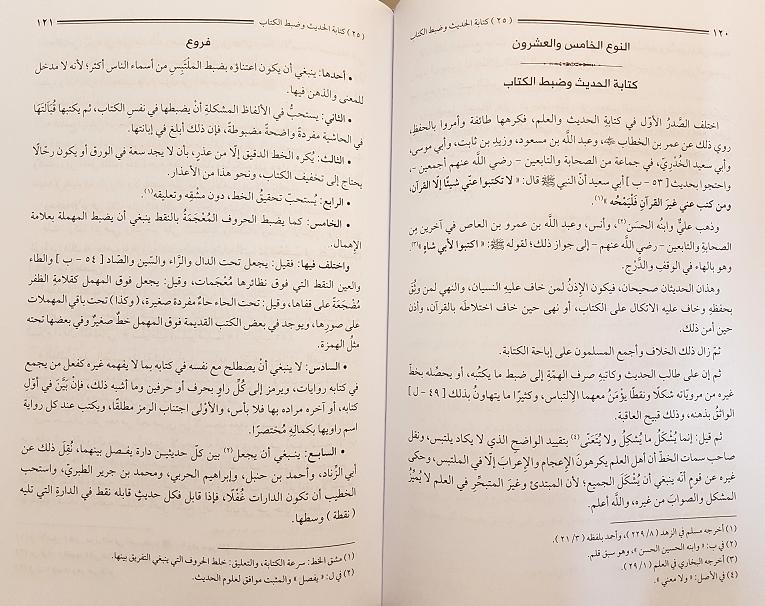 ١٢٠
(٢٥) كتابة الحديث وضبط الكتاب
النوع الخامس والعشرون
كتابة الحديث وضبط الكتاب
اختلف الصَّدرُ الأوّل في كتابةِ الحديث والعلم، فكرهها طائفة وأمروا بالحفظِ،
روي ذلك عن عمر بن الخطاب ﵁، وعبد اللَّه بن مسعود، وزيدِ بن ثابت، وأبي موسى،
وأبي سعيد الخُدْرِيّ، في جماعة من الصحابة والتابعين - رضي اللَّه عنهم أجمعين -،
واحتجوا بحديث [٥٣ - ب] أبي سعيد أنّ النبي ﷺ قال: « لا تكتبوا عنّي شيئًا إلّا القرآن،
ومن كتب عني غيرَ القرآنِ فَلْيَمْحُه »(١).
وذهب عليٌّ وابنُه الحسَن(٢)، وأنس، وعبد اللَّه بن عمرو بن العاص في آخرين مِن
الصحابةِ والتابعين - رضي اللَّه عنهم - إلى جواز ذلك؛ لقوله ﷺ: « اكتبوا لأبي شاهٍ »(٣)
وهو بالهاء في الوَقفِ والدَّرْج.
وهذان الحديثان صحيحان، فيكون الإذنُ لمن خاف عليه النسيان، والنهي لمن وُثِقَ
بحفظِهِ وخاف عليه الاتكال على الكتاب، أو نهى حين خاف اختلاطَه بالقرآن، وأذن
حين أمن ذلك.
ثمّ زال ذلك الخلاف وأجمع المسلمون على إباحة الكتابة.
ثم إن على طالب الحديث وكاتبهِ صرف الهمّةِ إلى ضبط ما يكتُبه، أو يحصِّله بخطّ
غيره من مرويّاته شكلًا ونقطًا يؤْمَنُ معهما الالتباس، وكثيرًا ما يتهاونُ بذلك [٤٩ - ل]
الواثقُ بذهنه، وذلك قبيح العاقبة.
ثم قيل: إنما يُشْكَلُ ما يُشكلُ ولا يُتَعَنَّى(٤) بتقييد الواضحِ الذي لا يكاد يلتبس، ونقل
صاحب سمات الخطّ أن أهل العلم يكرهونَ الإعجام والإعرابَ إلّا في الملتبس، وحكى
غيره عن قوم أنّه ينبغي أن يُشْكَلَ الجميع؛ لأن المبتدئ وغيرَ المتبحِّر في العلم لا يُمَيِّزُ
المشكل والصوابَ من غيره، واللَّه أعلم.
(١) أخرجه مسلم في الزهد (٨/ ٢٢٩)، وأحمد بلفظه (٣/ ٢١).
(٢) في ب: « وابنه الحسين الحسن »، وهو سبق قلم.
(٣) أخرجه البخاري في العلم (١/ ٢٩).
(٤) في الأصل: « ولا معنى ».
(٢٥) كتابة الحديث وضبط الكتاب
١٢١
فروع
• أحدها: ينبغي أن يكون اعتناؤه بضبط الملتَبِسِ من أسماء الناس أكثر؛ لأنه لا مدخل
للمعنى والذهن فيها.
• الثاني: يستحبُّ في الألفاظ المشكلةِ أنْ يضبطها في نفسِ الكتاب، ثم يكتبها قُبَالَتَهَا
في الحاشية مفردةً واضحةً مضبوطةً، فإن ذلك أبلغ في إبانتها.
• الثالث: يُكره الخط الدقيق إلّا من عذرٍ، بأن لا يجد سعة في الورق أو يكون رحَّالًا
يحتاج إلى تخفيف الكتاب، ونحو هذا من الأعذار.
• الرابع: يُستحبّ تحقيقُ الخط، دون مشْقِه وتعليقه(١).
• الخامس: كما يضبط الحروف المُعْجَمَةُ بالنقط ينبغي أن يضبط المهملة بعلامة
الإهمال.
واختلف فيها: فقيل: يجعل تحت الدال والرَّاء والسّين والصَّاد [٥٤ - ب] والطاء
والعين النقط التي فوق نظائرها مُعْجَمات، وقيل: يجعل فوق المهمل كقلامةِ الظفر
مُضْجَعَةً على قفاها، وقيل: تحت الحاء حاءٌ مفردة صغيرة، (وكذا) تحت باقي المهملات
على صورها، ويوجد في بعض الكتب القديمة فوق المهمل خطٌ صغيرٌ وفي بعضها تحته
مثلُ الهمزة.
• السادس: لا ينبغي أنْ يصطلح مع نفسه في كتابه بما لا يفهمه غيره كفعل من يجمع
في كتابه روايات، ويرمز إلى كُلِّ راوٍ بحرف أو حرفين وما أشبه ذلك، فإنْ بَيَّنَ في أوّلِ
كتابه، أو آخره مراده بها فلا بأس، والأوْلى اجتناب الرمز مطلقًا، ويكتب عند كل رواية
اسم راويها بكمالِهِ مُختصرًا.
• السابع: ينبغي أن يجعل(٢) بين كلّ حديثين دارة يفصل بينهما، نُقِلَ ذلك عن
أبي الزِّناد، وأحمد بن حنبل، وإبراهيم الحربي، ومحمد بن جرير الطبريّ، واستحب
الخطيب أن تكون الدارات غُفْلًا، فإذا قابل فكل حديثٍ قابله نقط في الدارةِ التي تليه
(نقطة) وسطها.
(١) مشق الخط: سرعة الكتابة، والتعليق: خلط الحروف التي ينبغي التفريق بينها.
(٢) في ل: « يفصل » والمثبت موافق لعلوم الحديث.